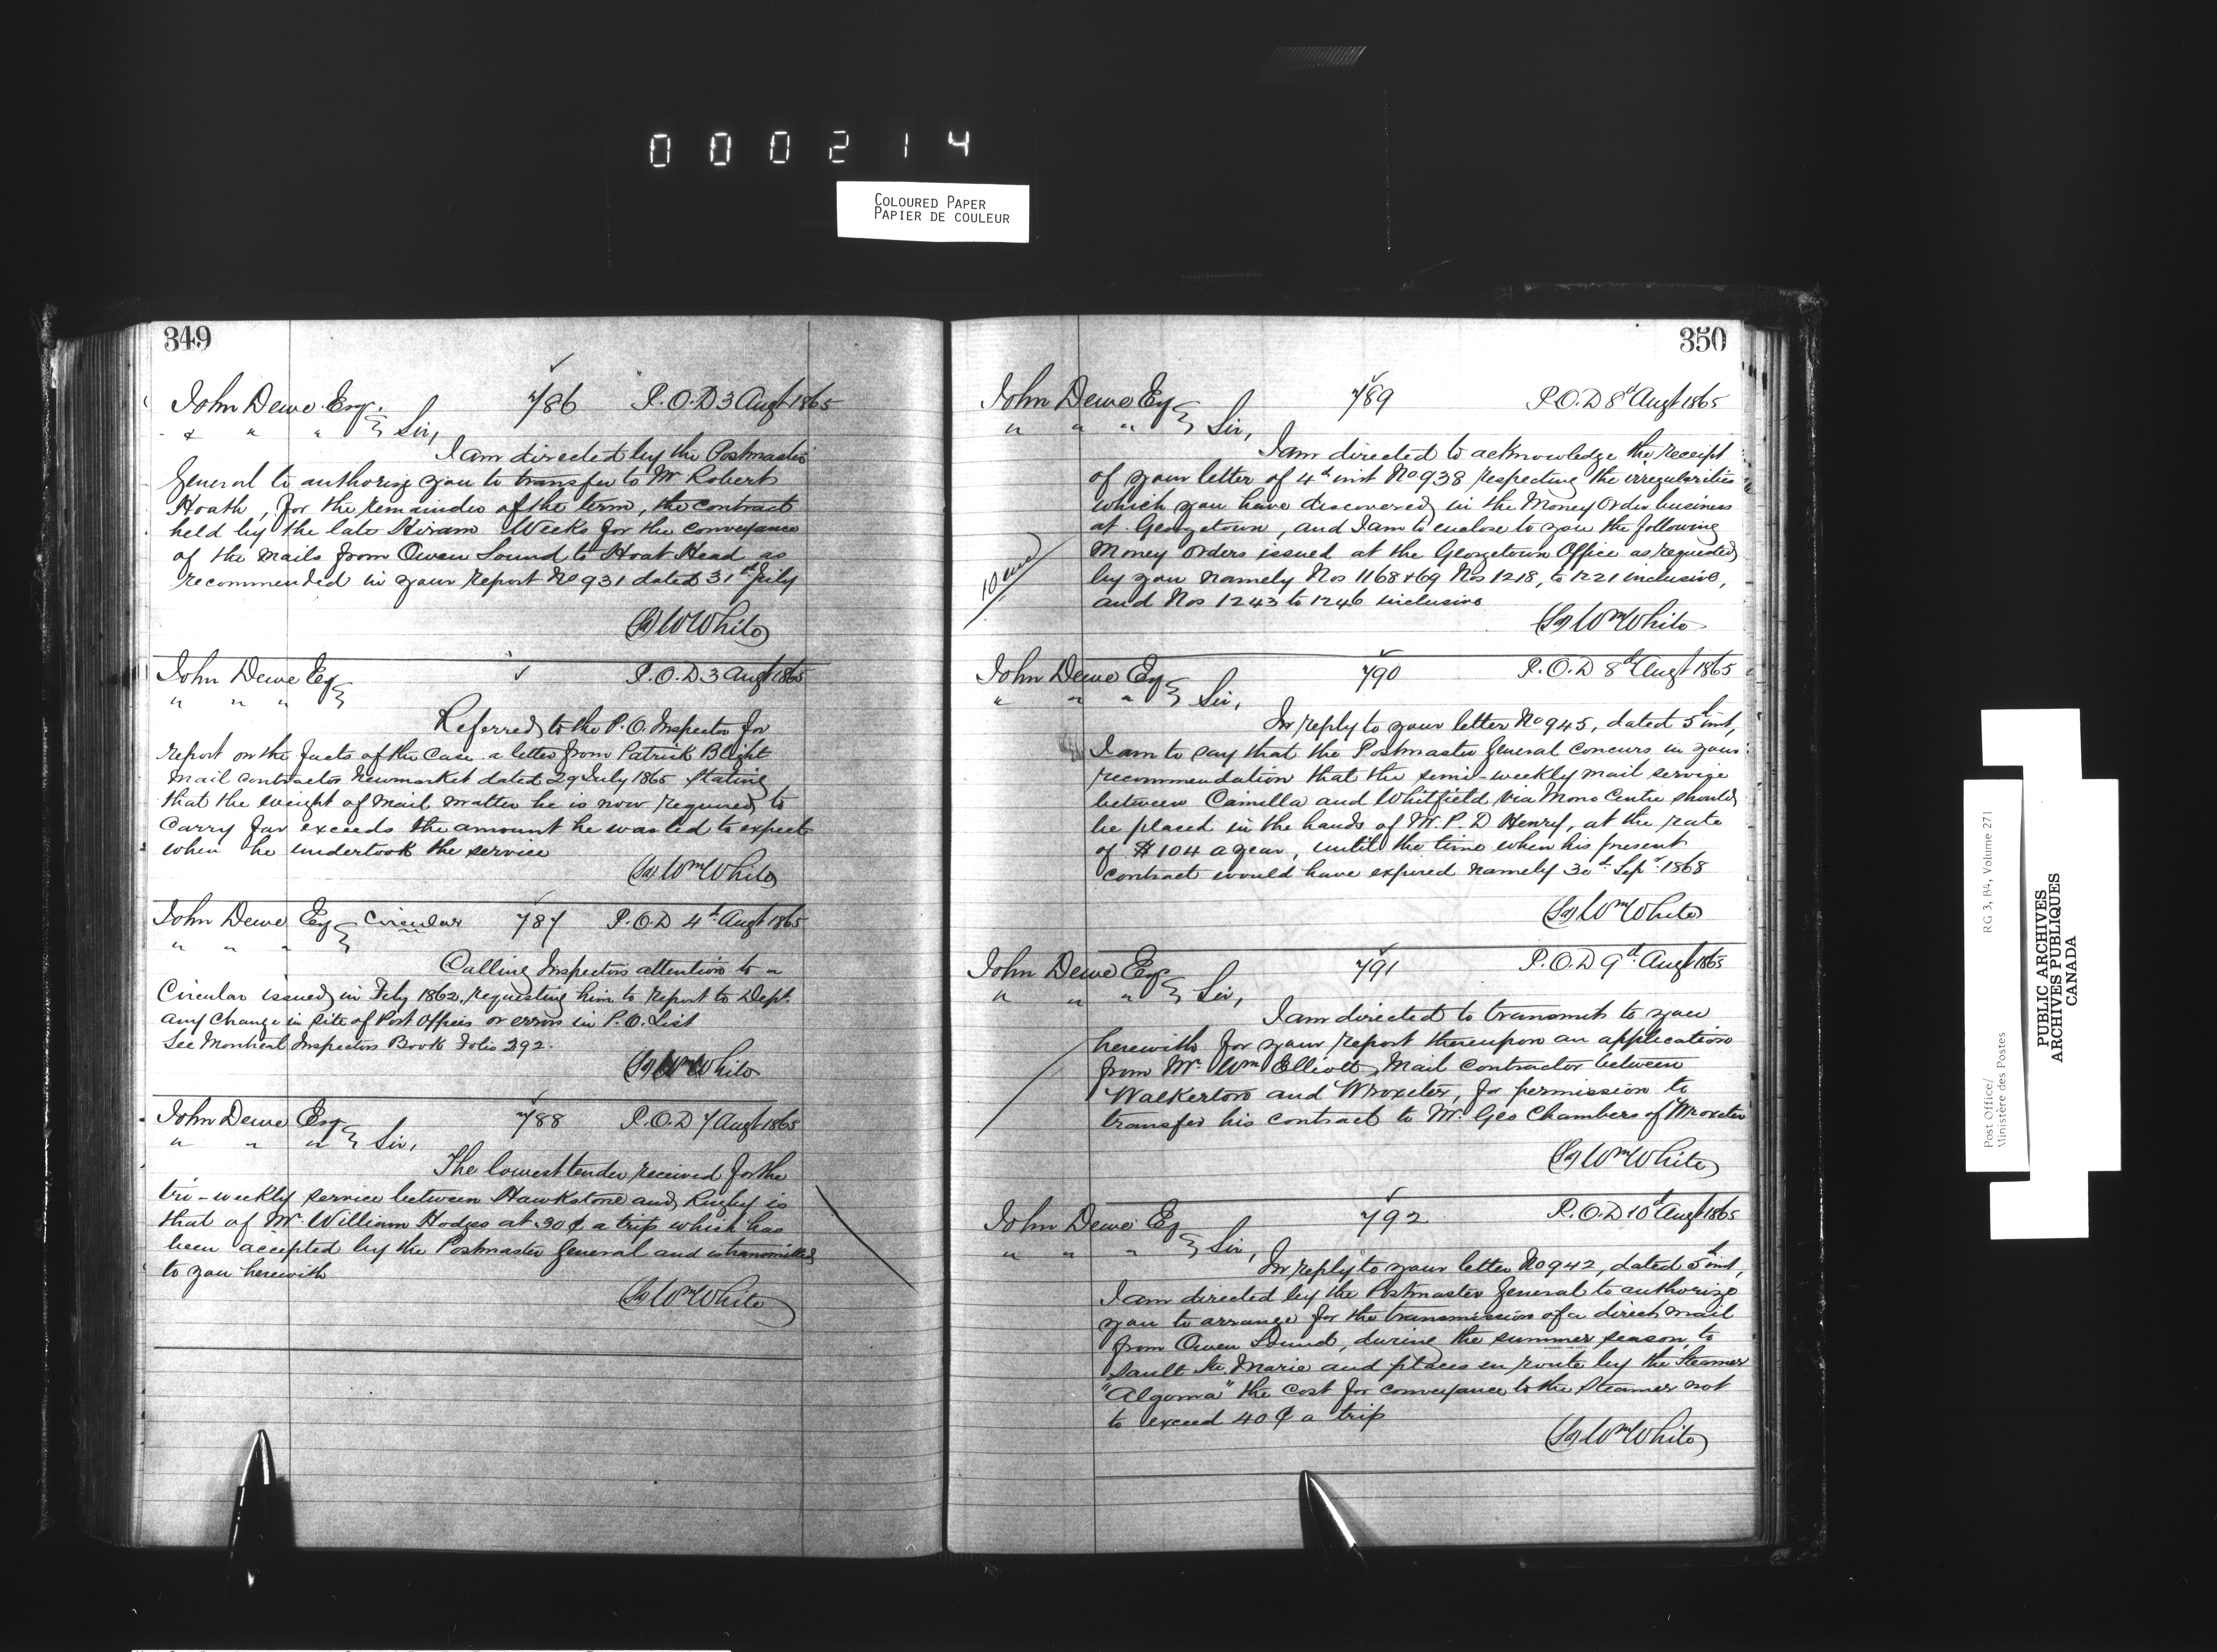 000214
COLOURED PAPER
PAPIER DE COULEUR
349
John Dewe Esqr. 786 P.O.D 3 Augt 1865
& " " } Sir,
I am directed by the Postmaster
General to authorize you to transfer to Mr Robert
Hoath, for the remainder of the term, the contract
held by the late Hiram Weeks for the conveyance
of the mails from Owen Sound to Hoat Head as
recommended in your report No 931 dated 31st July
(Sd) W White
John Dewe Esq P.O.D 3 Augt 1865
" " " }
Referred to the P.O. Inspector for
report on the facts of the case a letter from Patrick Blight
Mail contractor Newmarket dated 29 July 1865 stating
that the weight of mail matter he is now required to
carry far exceeds the amount he was led to expect
when he undertook the service
(Sd) Wm White
John Dewe Esq Circular 787 P.O.D 4th Augt 1865
" " " }
Calling Inspectors attention to a
Circular issued in Feby 1862, requesting him to report to Dept.
any change in site of Post Offices or errors in P.O. List
See Montreal Inspectors Book Folio 292.
(Sd) Wm White
John Dewe Esq 788 P.O.D 7 Augt 1865
" " " } Sir,
The lowest tender received for the
tri-weekly service between Hawkstone and Rugby is
that of Mr. William Hodges at 30 ¢ a trip which has
been accepted by the Postmaster General and is transmitted
to you herewith
(Sd) Wm White
350
John Dewe Esq 789 P.O.D 8th Augt 1865
" " " } Sir,
I am directed to acknowledge the receipt
of your letter of 4th inst No 938 respecting the irregularities
which you have discovered in the Money Order business
at Georgetown, and I am to enclose to you the following
Money Orders issued at the Georgetown Office as requested
by you namely Nos 1168 & 69 Nos 1218, to 1221 inclusive,
and Nos 1243 to 1246 inclusive
(Sd) Wm White
John Dewe Esq 790 P.O.D 8th Augt 1865
" " " } Sir,
In reply to your letter No 945, dated 5th inst,
I am to say that the Postmaster General concurs in your
recommendation that the semi-weekly mail service
between Camilla and Whitfield via Mono Centre should
be placed in the hands of Mr. P. D Henry, at the rate
of $104 a year, until the time when his present
contract would have expired namely 30th Sepr. 1868
(Sd) Wm White
John Dewe Esqr 791 P.O.D 9th Augt 1865
" " " } Sir,
I am directed to transmit to you
herewith for your report thereupon an application
from Mr. Wm Elliott, Mail Contractor between
Walkerton and Wroxeter, for permission to
transfer his contract to Mr. Geo Chambers of Wroxeter
(Sd) Wm White
John Dewe Esq 792 P.O.D 10th Augt 1865
" " " } Sir,
In reply to your letter No 942, dated 5th inst,
I am directed by the Postmaster General to authorize
you to arrange for the transmission of a direct mail
from Owen Sound, during the summer season, to
Sault Ste. Marie and places en route by the Steamer
"Algoma" the cost for conveyance to the Steamer not
to exceed 40 ¢ a trip
(Sd) Wm White
Post Office/
Ministère des Postes
RG 3, B4, Volume 271
PUBLIC ARCHIVES
ARCHIVES PUBLIQUES
CANADA